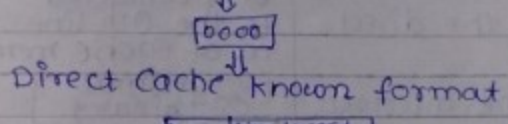 0000
Direct Cache known format